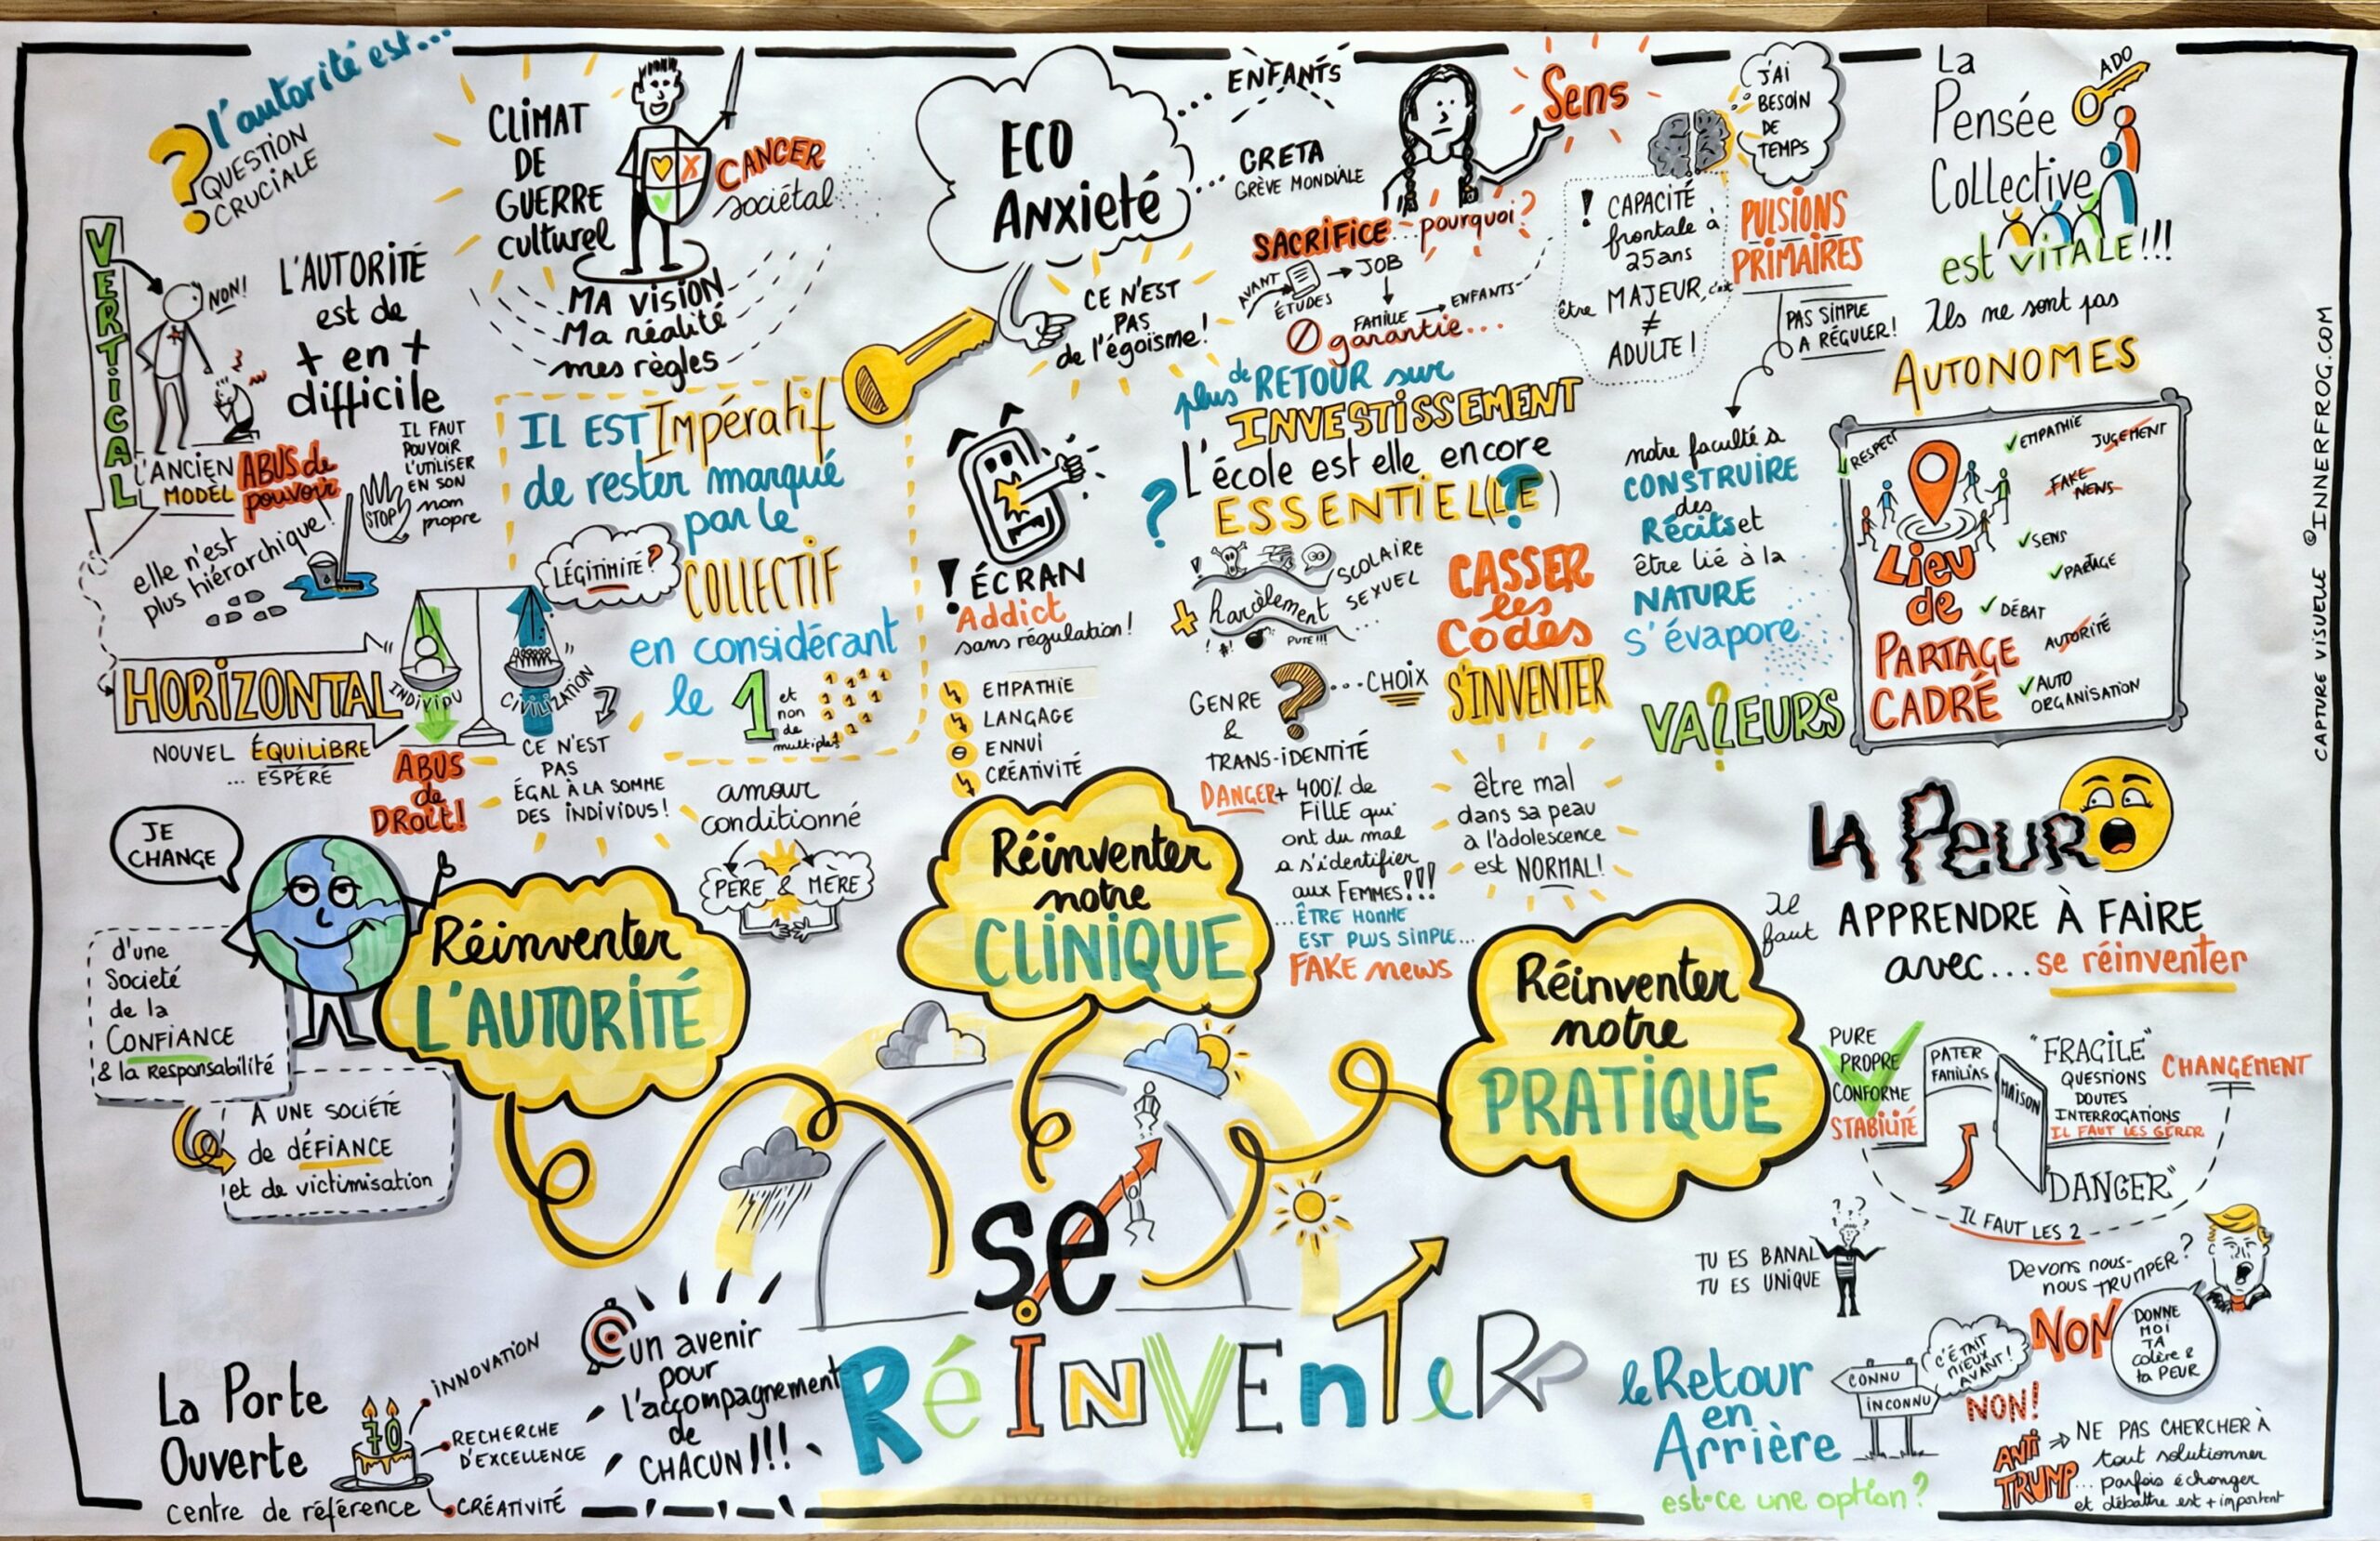 l'autorité est...
?
QUESTION
CRUCIALE
VERTICAL
NON!
L'AUTORITÉ
est de
+ en +
difficile
L'ANCIEN
MODÈL
ABUS de
pouvoir
IL FAUT
POUVOIR
L'UTILISER
EN SON
nom
propre
STOP
elle n'est
plus hiérarchique!
HORIZONTAL
NOUVEL ÉQUILIBRE
... ESPÉRÉ
INDIVIDU
CIVILIZATION
ABUS
de
DROIT!
CE N'EST
PAS
ÉGAL À LA SOMME
DES INDIVIDUS!
CLIMAT
DE
GUERRE
culturel
CANCER
sociétal
MA VISION
Ma réalité
mes règles
IL EST Impératif
de rester marqué
par le
COLLECTIF
en considérant
le 1
et
non
de
multiples
1 1 1 1
1 1 1
1 1
LÉGITIMITÉ?
amour
conditionné
PÈRE & MÈRE
JE
CHANGE
d'une
Societé
de la
CONFIANCE
& la Responsabilité
À UNE SOCIÉTÉ
de DÉFIANCE
et de victimisation
Réinventer
L'AUTORITÉ
ECO
ANXieté
ENFANTS
GRETA
GRÈVE MONDIALE
Sens
CE N'EST
PAS
de l'égoïsme!
SACRIFICE... pourquoi?
AVANT
ÉTUDES
JOB
FAMILLE
ENFANTS
garantie...
plus de RETOUR sur
INVESTISSEMENT
L'école est elle encore
ESSENTIEL(LE)
?
!ÉCRAN
Addict
sans régulation!
EMPATHIE
LANGAGE
ENNUI
CRÉATIVITÉ
+ harcèlement
SCOLAIRE
SEXUEL
...
PUTE!!!
GENRE
&
TRANS-IDENTITÉ
?
...CHOIX
DANGER + 400% de
FILLE qui
ont du mal
a s'identifier
aux FEMMES!!!
...ÊTRE HOMME
EST PLUS SIMPLE...
FAKE news
CASSER
les
Codes
S'INVENTER
être mal
dans sa peau
a l'adolescence
est NORMAL!
Réinventer
notre
CLINIQUE
J'AI
BESOIN
DE
TEMPS
! CAPACITÉ
frontale à
25ans
être MAJEUR, c'est
≠
ADULTE!
PULSIONS
PRIMAIRES
PAS SIMPLE
A RÉGULER!
notre faculté à
CONSTRUIRE
des
Récits et
être lié à la
NATURE
s'évapore
VALEURS
?
La
Pensée
Collective
est VITALE!!!
ADO
Ils ne sont pas
AUTONOMES
RESPECT
EMPATHIE
JUGEMENT
FAKE
NEWS
SENS
PARTAGE
DÉBAT
AUTORITÉ
AUTO
ORGANISATION
Lieu
de
PARTAGE
CADRÉ
CAPTURE VISUELLE @INNERFROG.COM
LA PEUR
Il
faut
APPRENDRE À FAIRE
avec... se réinventer
Réinventer
notre
PRATIQUE
PURE
PROPRE
CONFORME
STABILITÉ
PATER
FAMILIAS
MAISON
"FRAGILE"
QUESTIONS
DOUTES
INTERROGATIONS
IL FAUT LES GÉRER
CHANGEMENT
"DANGER"
IL FAUT LES 2
TU ES BANAL
TU ES UNIQUE
? ? ? ?
Devons nous-
nous TRUMPER?
NON
DONNE
MOI
TA
colère &
ta PEUR
le Retour
en
Arrière
est-ce une option?
CONNU
INCONNU
C'ÉTAIT
MIEUX
AVANT!
NON!
ANTI
TRUMP
NE PAS CHERCHER À
tout solutionner
... parfois échanger
et débattre est + important
se
RéINVEnTeR
La Porte
Ouverte
centre de référence
70
INNOVATION
RECHERCHE
D'EXCELLENCE
CRÉATIVITÉ
un avenir
pour
l'accompagnement
de
CHACUN!!!